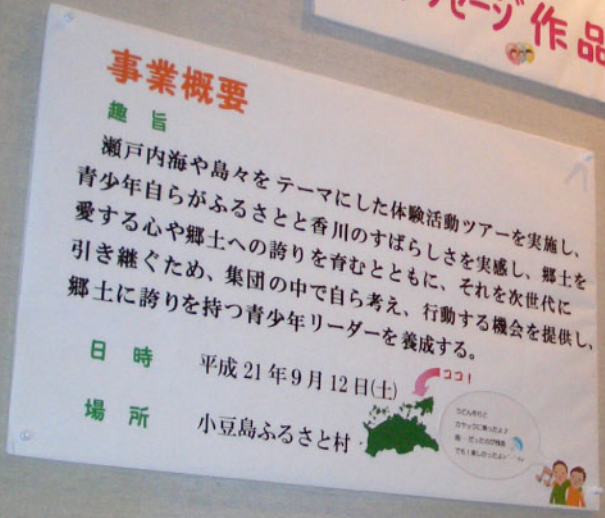 ッセージ作品
事業概要
趣旨
瀬戸内海や島々をテーマにした体験活動ツアーを実施し、
青少年自らがふるさとと香川のすばらしさを実感し、郷土を
愛する心や郷土への誇りを育むとともに、それを次世代に
引き継ぐため、集団の中で自ら考え、行動する機会を提供し、
郷土に誇りを持つ青少年リーダーを養成する。
日時 平成21年9月12日(土)
ココ!
場所 小豆島ふるさと村
うどん作りと
カヤックに乗ったよ♪
でも!楽しかったよ